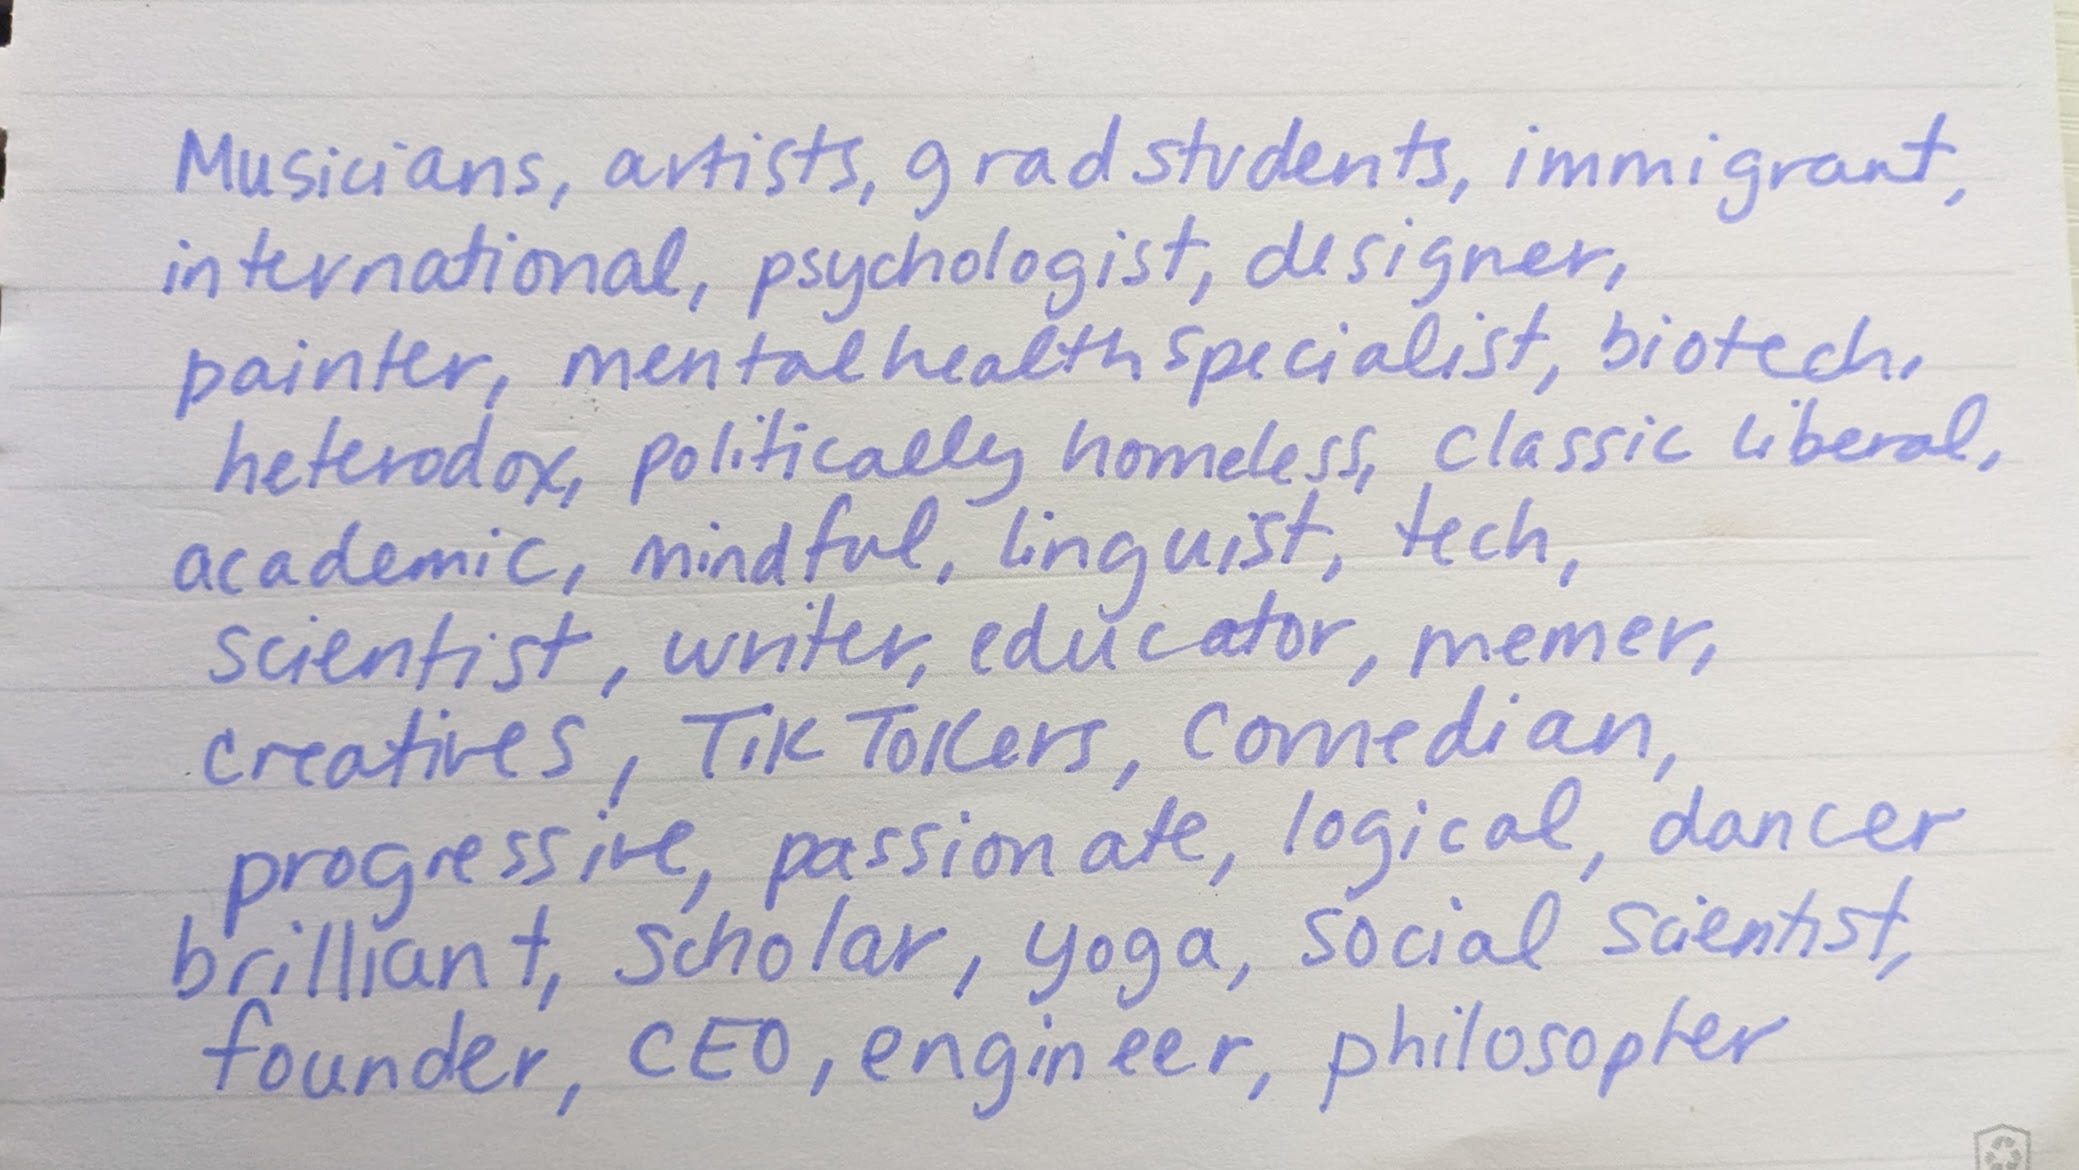 Musicians, artists, grad students, immigrant,
international, psychologist, designer,
painter, mental health specialist, biotech,
heterodox, politically homeless, classic liberal,
academic, mindful, linguist, tech,
scientist, writer, educator, memer,
creatives, TikTokers, comedian,
progressive, passionate, logical, dancer
brilliant, scholar, yoga, social scientist,
founder, CEO, engineer, philosopher